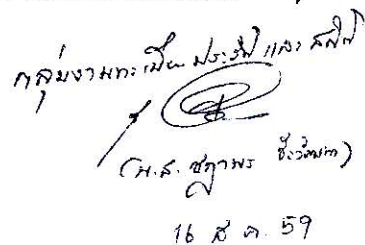 กลุ่มงานทะเบียนประวัติ และ สถิติ
(น.ส. ชฎาพร
16 ส.ค. 59